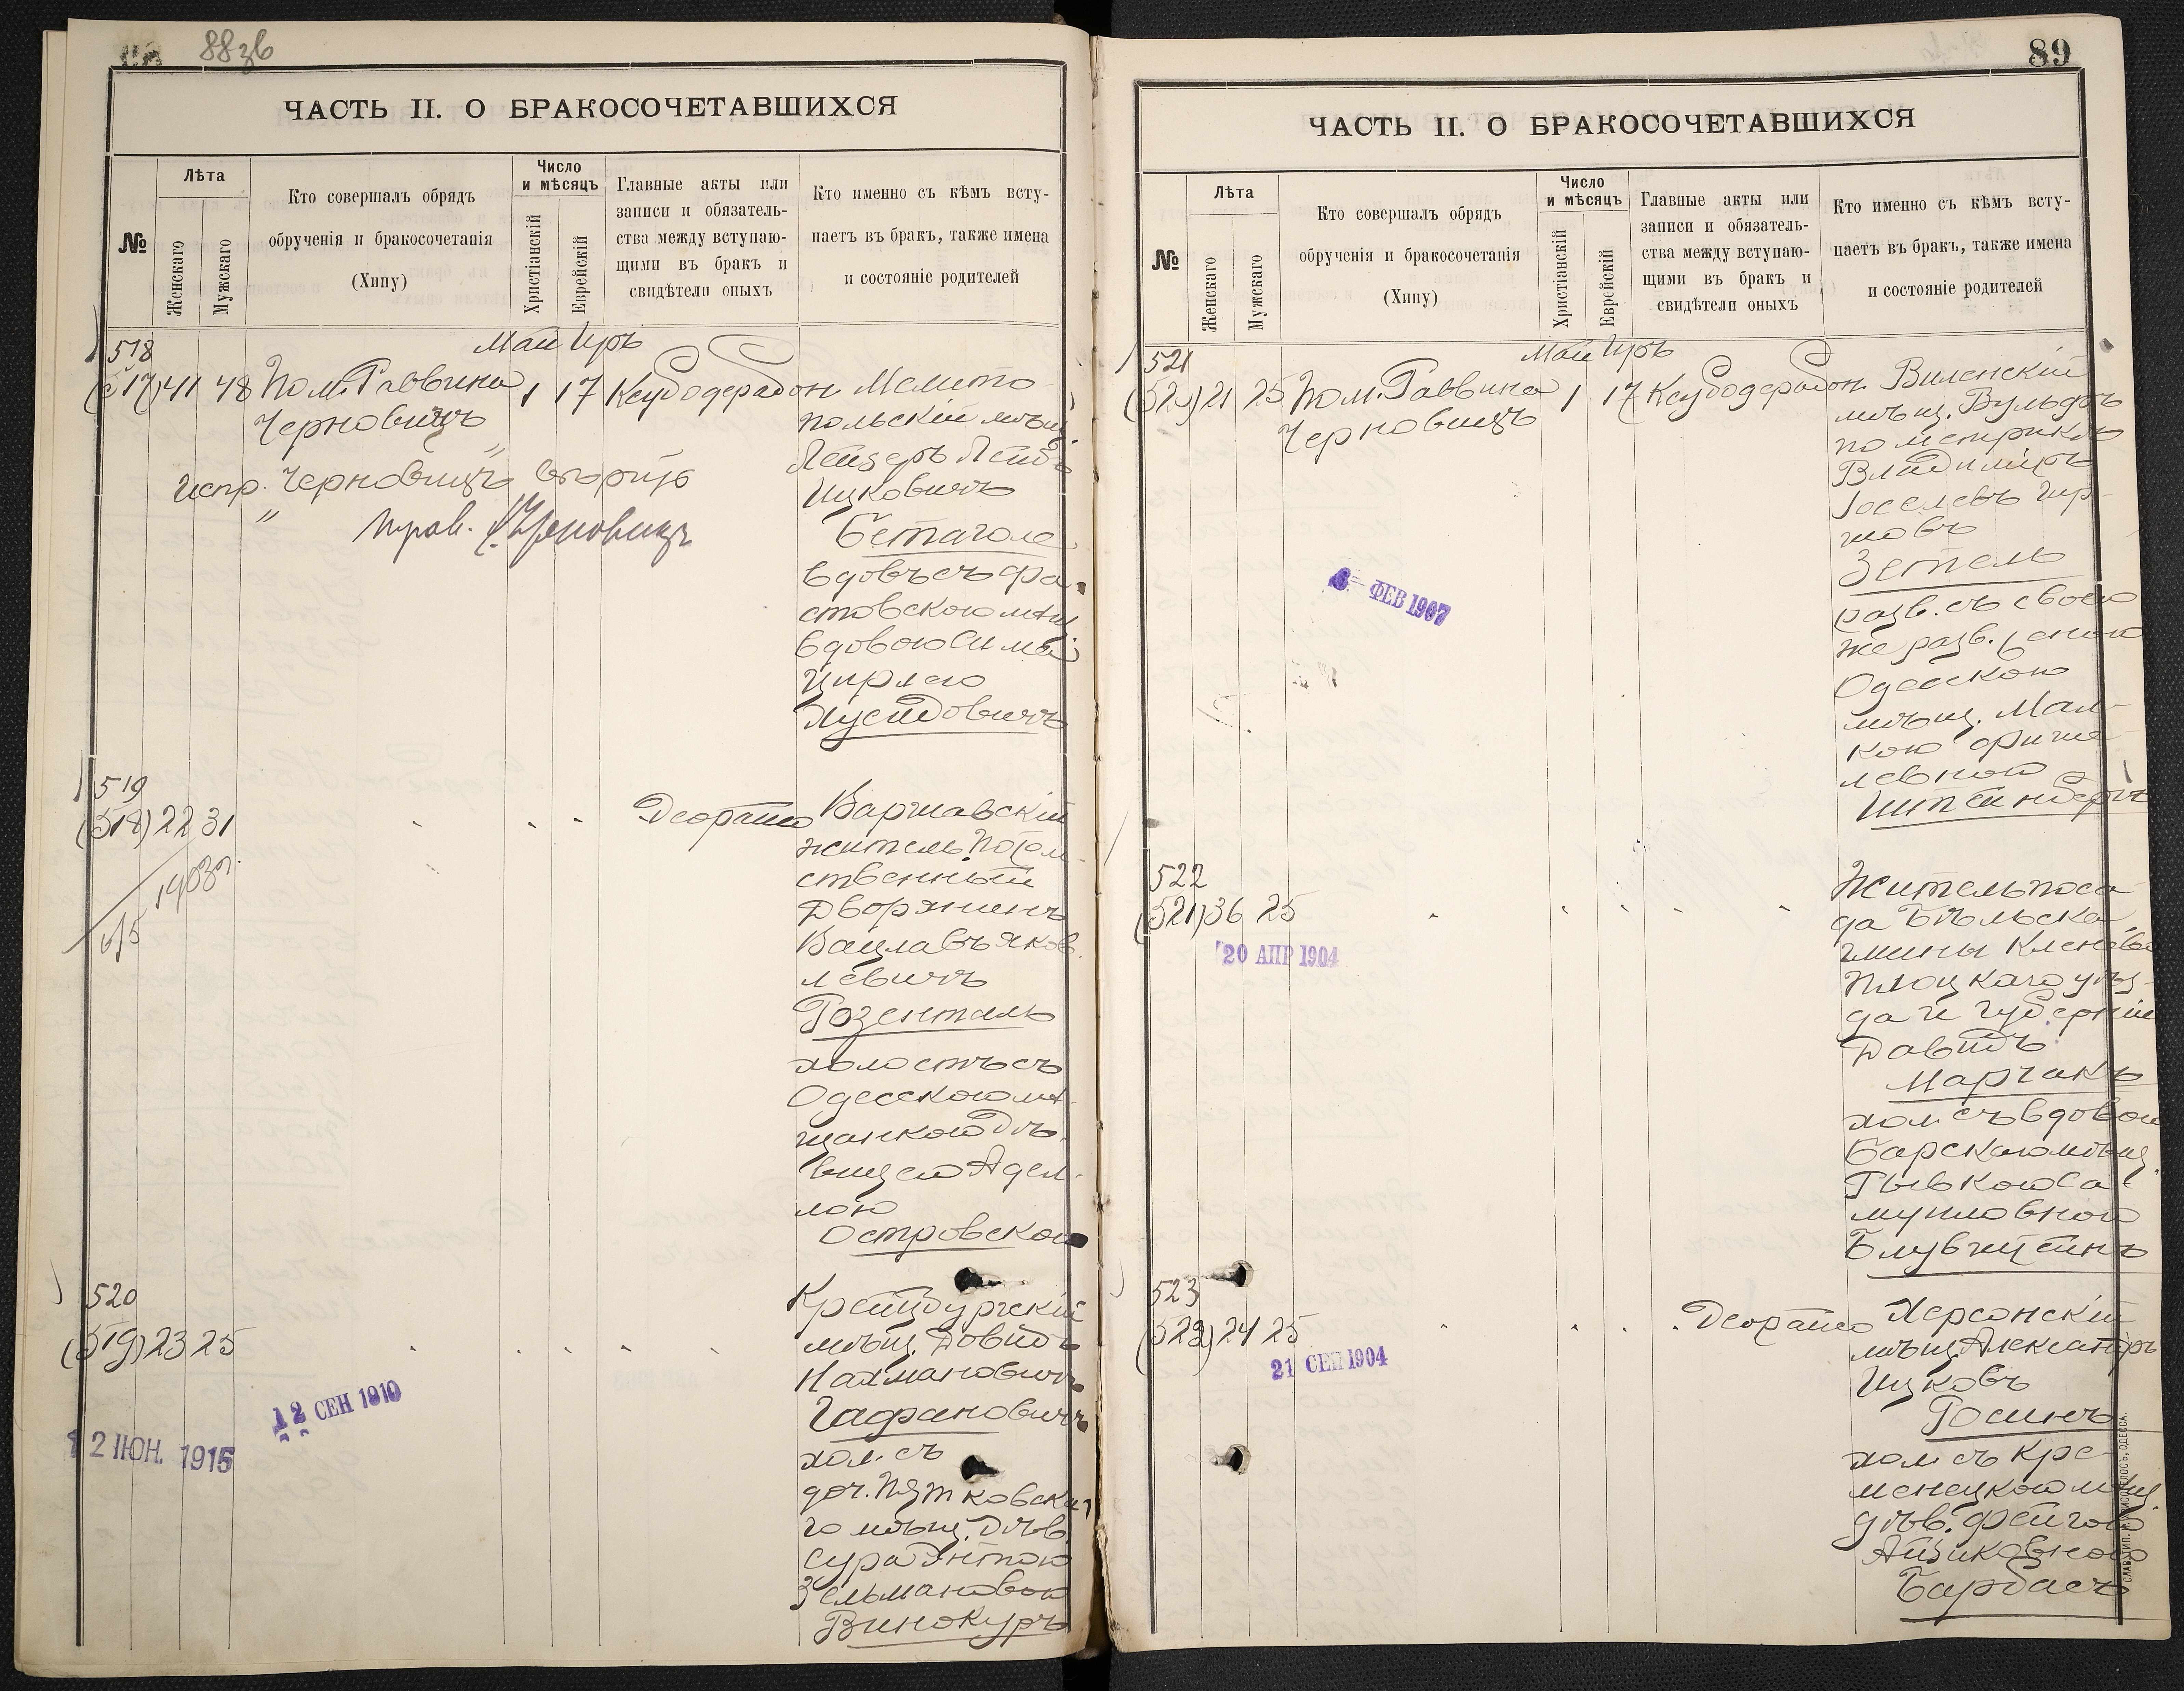 88зв
ЧАСТЬ II. О БРАКОСОЧЕТАВШИХСЯ
№
Лѣта
Женскаго
Мужскаго
Кто совершалъ обрядъ
обрученія и бракосочетанія
(Хипу)
Число
и мѣсяцъ
Христіанскій
Еврейскій
Главные акты или
записи и обязатель-
ства между вступаю-
щими въ бракъ и
свидѣтели оныхъ
Кто именно съ кѣмъ всту-
паетъ въ бракъ, также имена
и состояніе родителей
Май Иръ
518
(517) 41 48 Пом. Раввина 1 17
Черновицъ
Испр. "Черновицъ" вѣрить
Мелито
польскій мѣщ.
Лейзеръ Лейбъ
Ицковичъ
Бетаголе
вдовъ съ Фа
стовскою мѣщ
вдовою Симой
Цирлею
Хусидовичъ
519
(518) 22 31
1903г.
Деорайсо
Варшавскій
житель Потом
ственный
Дворянинъ
Вацлавъ Яков
левичъ
Розенталь
холостъ съ
Одесскою мѣ
щанкою Дѣ-
вицею Адел-
лою
Островской
520
(519) 23 25
12 СЕН 1910
12 ІЮН. 1915
Крейцбургскій
мѣщ. Довидъ
Нахмановичъ
Гафановичъ
хол. съ
доч. Пятковска
го мѣщ. Дѣв.
Сура Энтою
Зельмановою
Винокуръ
89
ЧАСТЬ II. О БРАКОСОЧЕТАВШИХСЯ
№
Лѣта
Женскаго
Мужскаго
Кто совершалъ обрядъ
обрученія и бракосочетанія
(Хипу)
Число
и мѣсяцъ
Христіанскій
Еврейскій
Главные акты или
записи и обязатель-
ства между вступаю-
щими въ бракъ и
свидѣтели оныхъ
Кто именно съ кѣмъ всту-
паетъ въ бракъ, также имена
и состояніе родителей
Май Иръ
521
(520) 21 25 Пом. Раввина 1 17
Черновицъ
6 ФЕВ 1907
Виленскій
мѣщ. Вульфъ
по метрикѣ
Владиміръ
Іоселевъ Гир-
шовъ
Зетель
разв. съ своею
же разв. женою
Одесскою
мѣщ. Мал-
кою Фише
левной
Штейнбергъ
522
(521) 36 25
20 АПР 1904
Житель поса
да Бѣльска
гмины Кленево
Плоцкаго уѣз-
да и губерніи
Давидъ
Марчакъ
хол. съ вдовой
Барскою мѣщ.
Рывкою Са
муиловной
Блувштейнъ
523
(522) 24 25
21 СЕН 1904
Деорайсо
Херсонскій
мѣщ. Александръ
Ицковъ
Росинъ
хол. съ Кре-
менецкою мѣщ.
дѣв. Фейгою
Айзиковною
Барбасъ